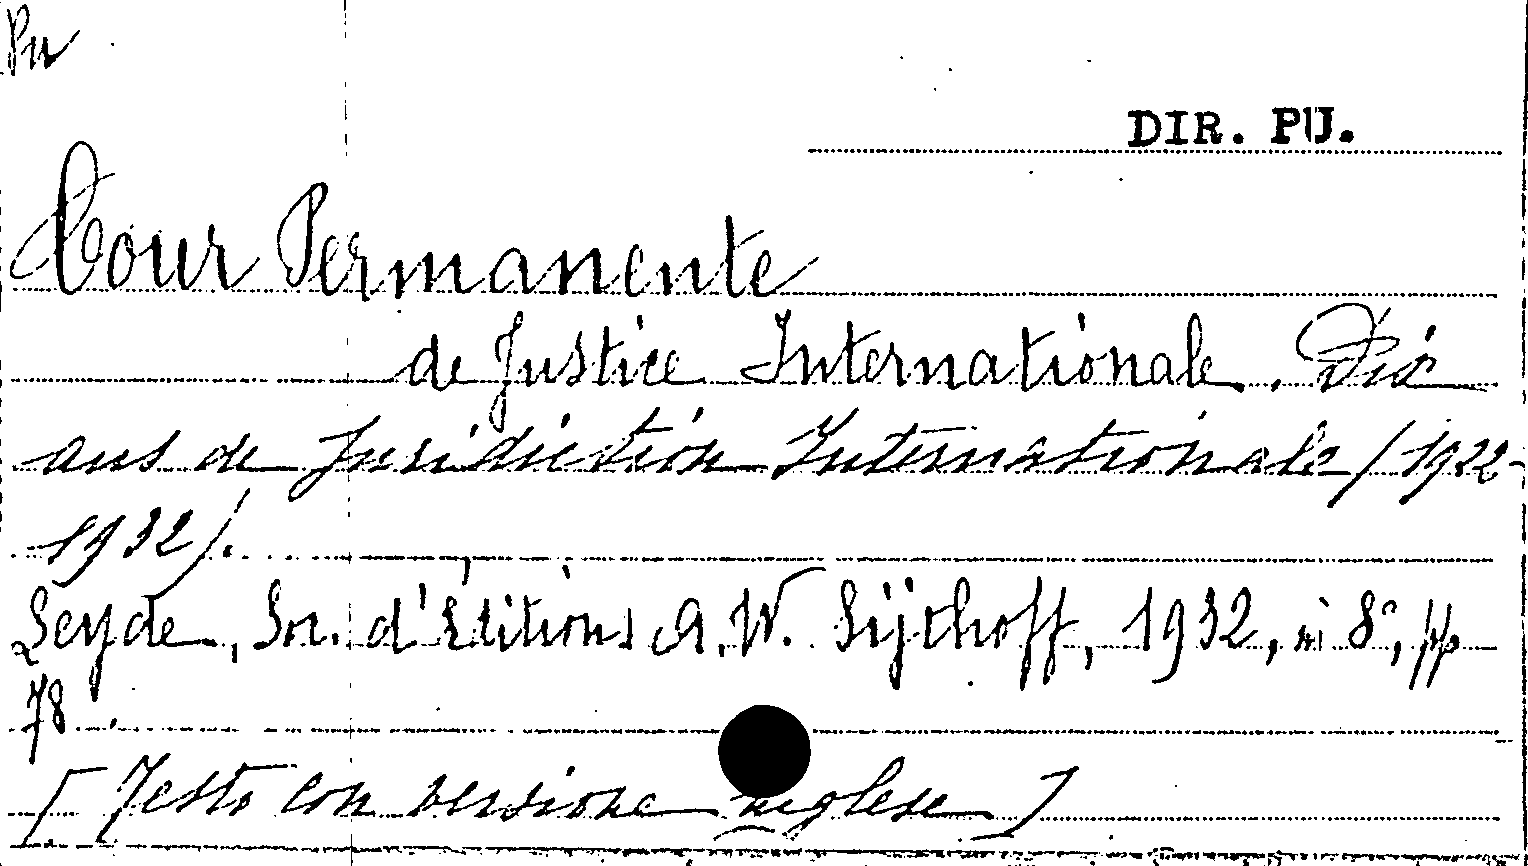 Pu
DIR. PU.
Cour Permanente
de Justice Internationale. Dix
ans de Juridiction Internationale (1922-
1932).
Leyde, Soc. d'Éditions A. W. Sijthoff, 1932, in 8°, pp
78.
[Testo con versione inglese]